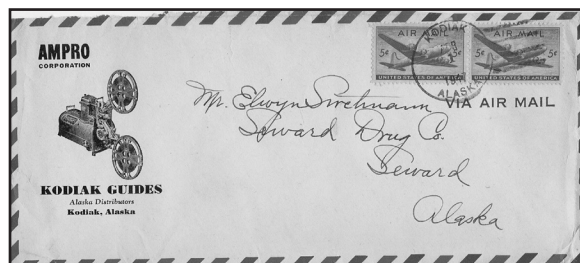 AMPRO
CORPORATION
KODIAK GUIDES
Alaska Distributors
Kodiak, Alaska
AIR MAIL
5¢ 5¢
UNITED STATES OF AMERICA
AIR MAIL
5¢ 5¢
UNITED STATES OF AMERICA
KODIAK
ALASKA
VIA AIR MAIL
Mr. Elwyn
Seward Drug Co.
Seward
Alaska